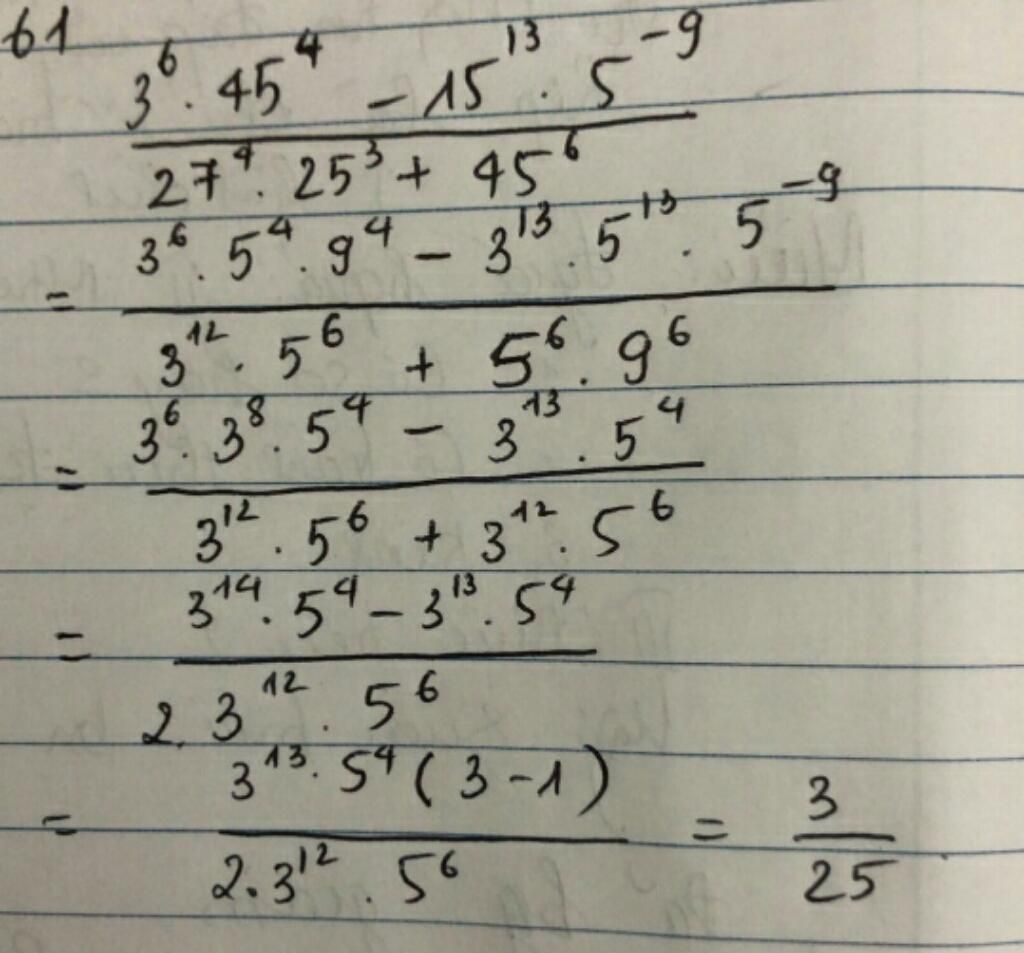 61
3⁶ . 45⁴ - 15¹³ . 5⁻⁹
27⁴ . 25³ + 45⁶
= 3⁶ . 5⁴ . 9⁴ - 3¹³ . 5¹³ . 5⁻⁹
3¹² . 5⁶ + 5⁶ . 9⁶
= 3⁶ . 3⁸ . 5⁴ - 3¹³ . 5⁴
3¹² . 5⁶ + 3¹² . 5⁶
= 3¹⁴ . 5⁴ - 3¹³ . 5⁴
2. 3¹² . 5⁶
= 3¹³ . 5⁴ ( 3 - 1 ) = 3
2. 3¹² . 5⁶ 25